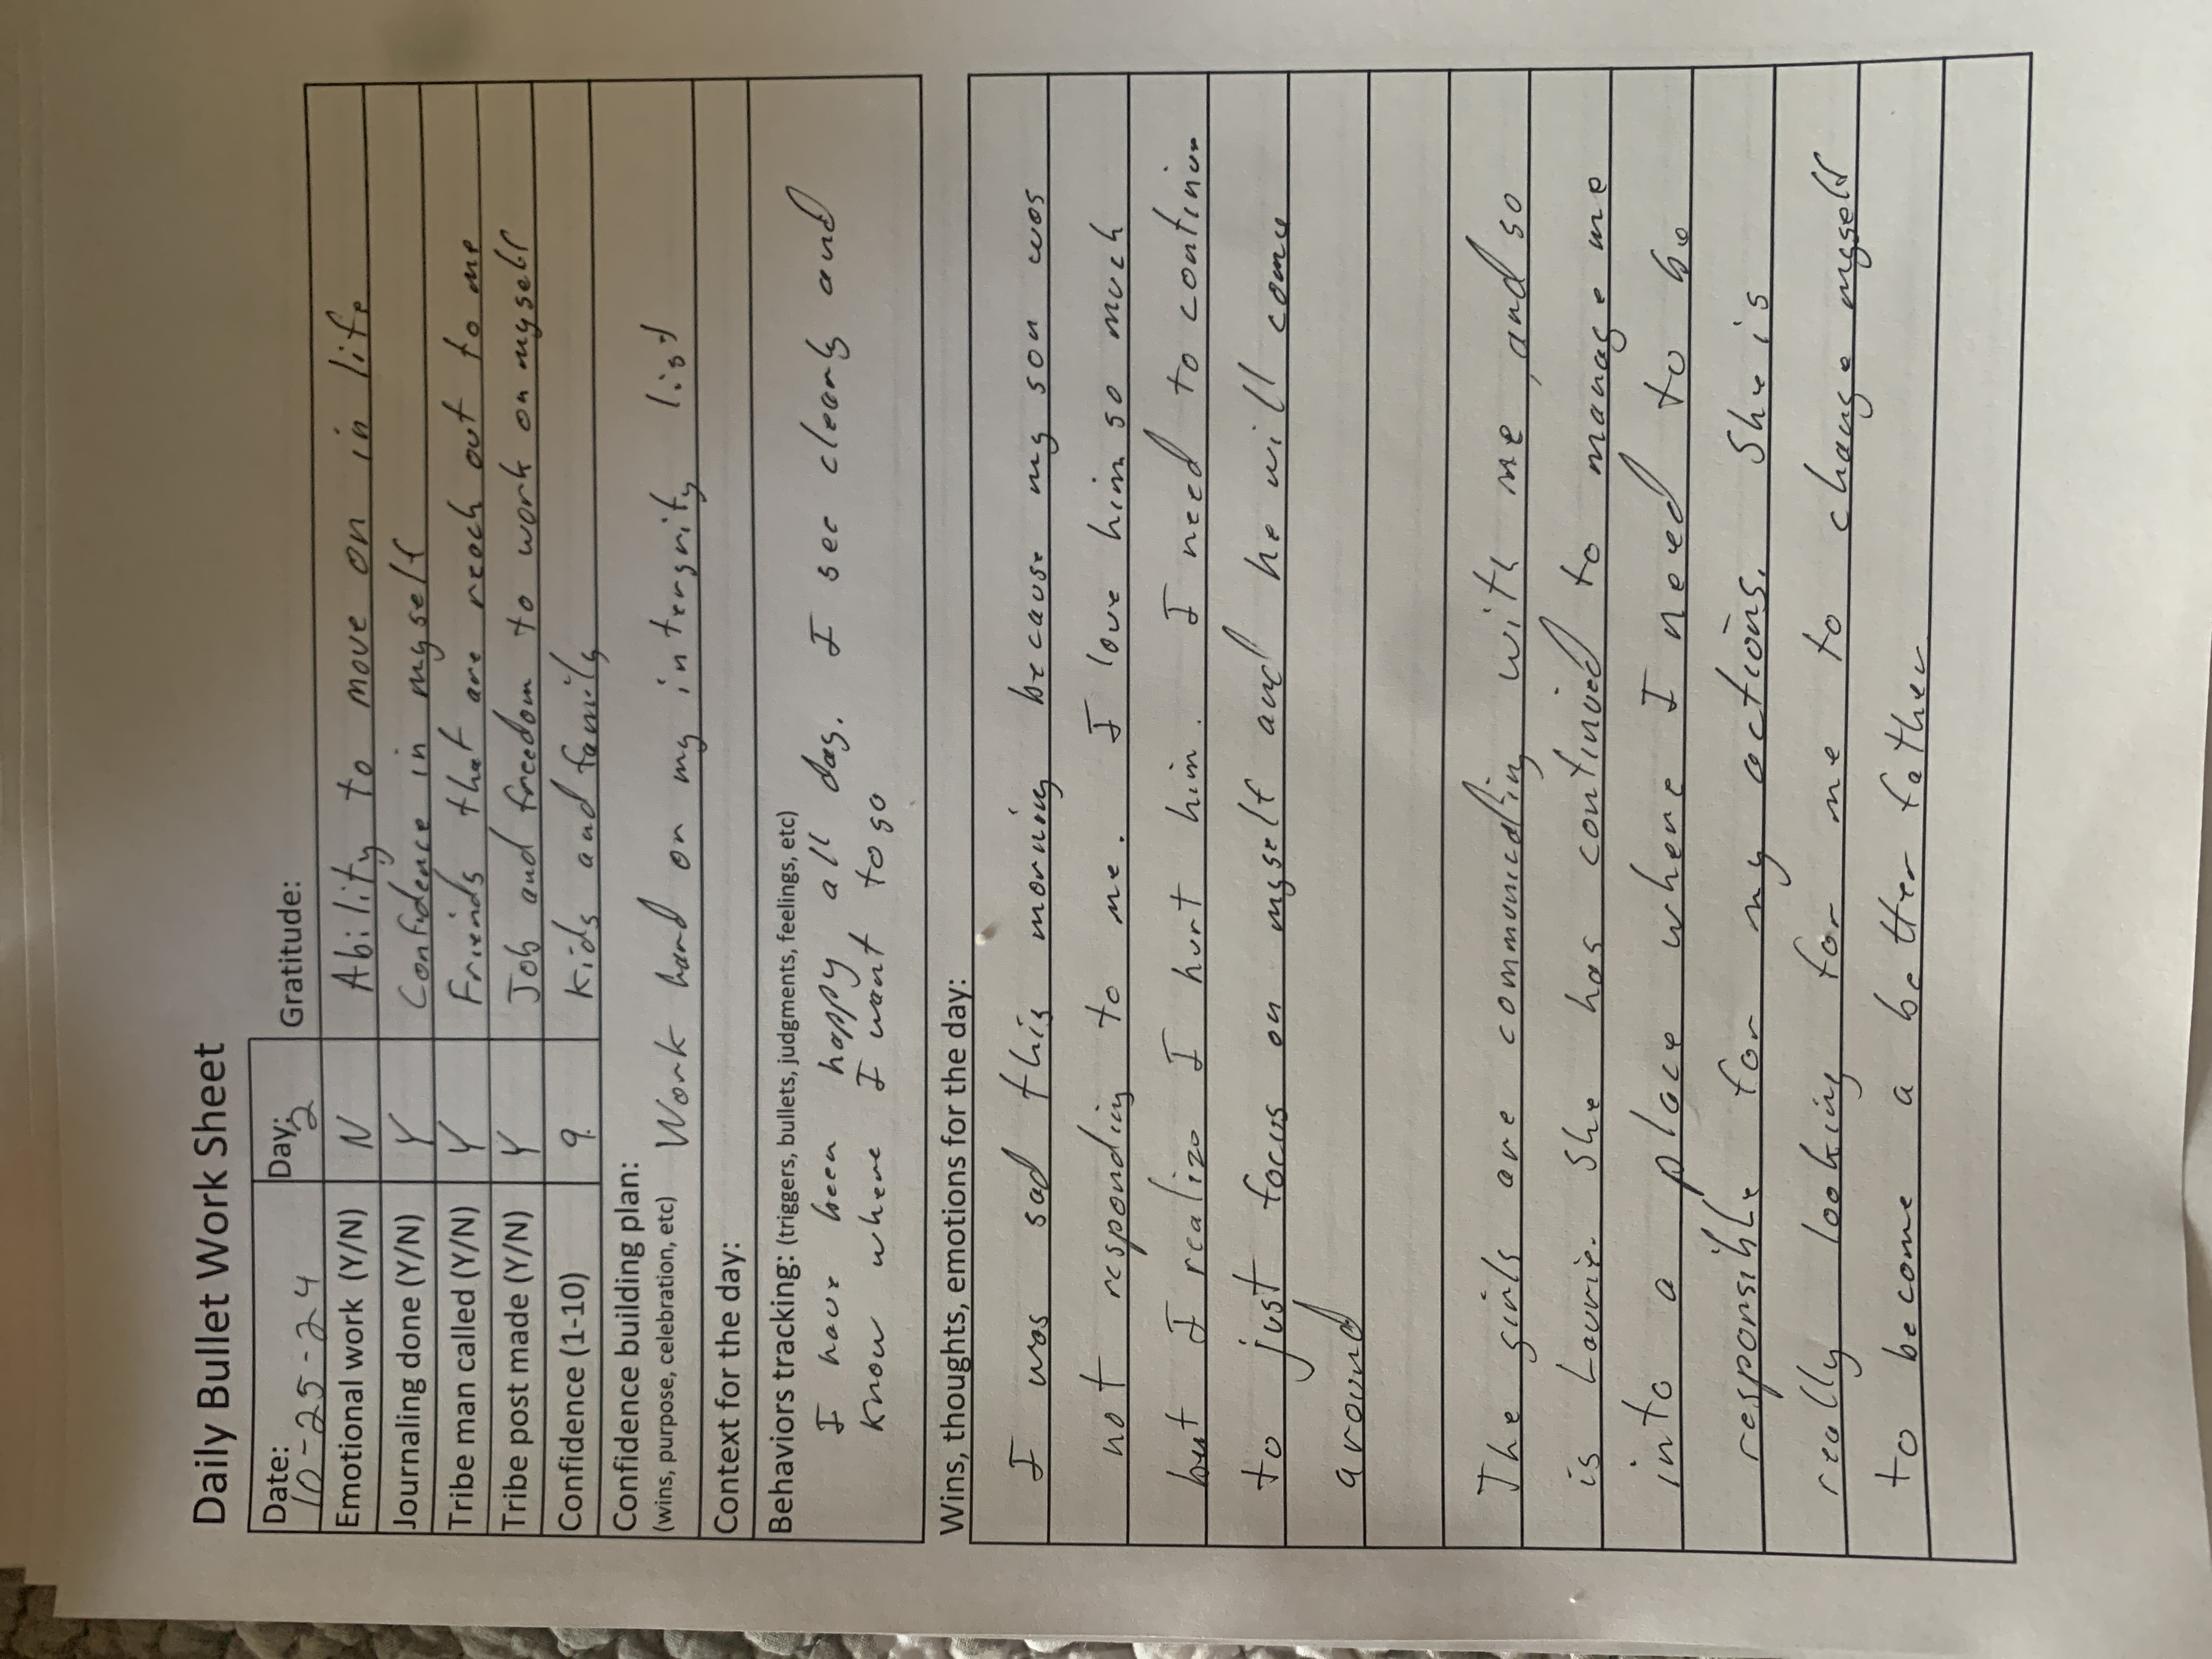 Daily Bullet Work Sheet
Date: 10-25-24 Day: 2 Gratitude:
Emotional work (Y/N) N Ability to move on in life
Journaling done (Y/N) Y Confidence in myself
Tribe man called (Y/N) Y Friends that are reach out to me
Tribe post made (Y/N) Y Job and freedom to work on myself
Confidence (1-10) 9 Kids and family
Confidence building plan:
(wins, purpose, celebration, etc) Work hard on my intergrity list
Context for the day:
Behaviors tracking: (triggers, bullets, judgments, feelings, etc)
I have been happy all day. I see clearly and
know where I want to go
Wins, thoughts, emotions for the day:
I was sad this morning because my son was
not responding to me. I love him so much
but I realize I hurt him. I need to continue
to just focus on myself and he will come
around
The girls are communicating with me, and so
is Laurie. She has continued to manage me
into a place where I need to be
responsible for my actions. She is
really looking for me to change myself
to become a better father